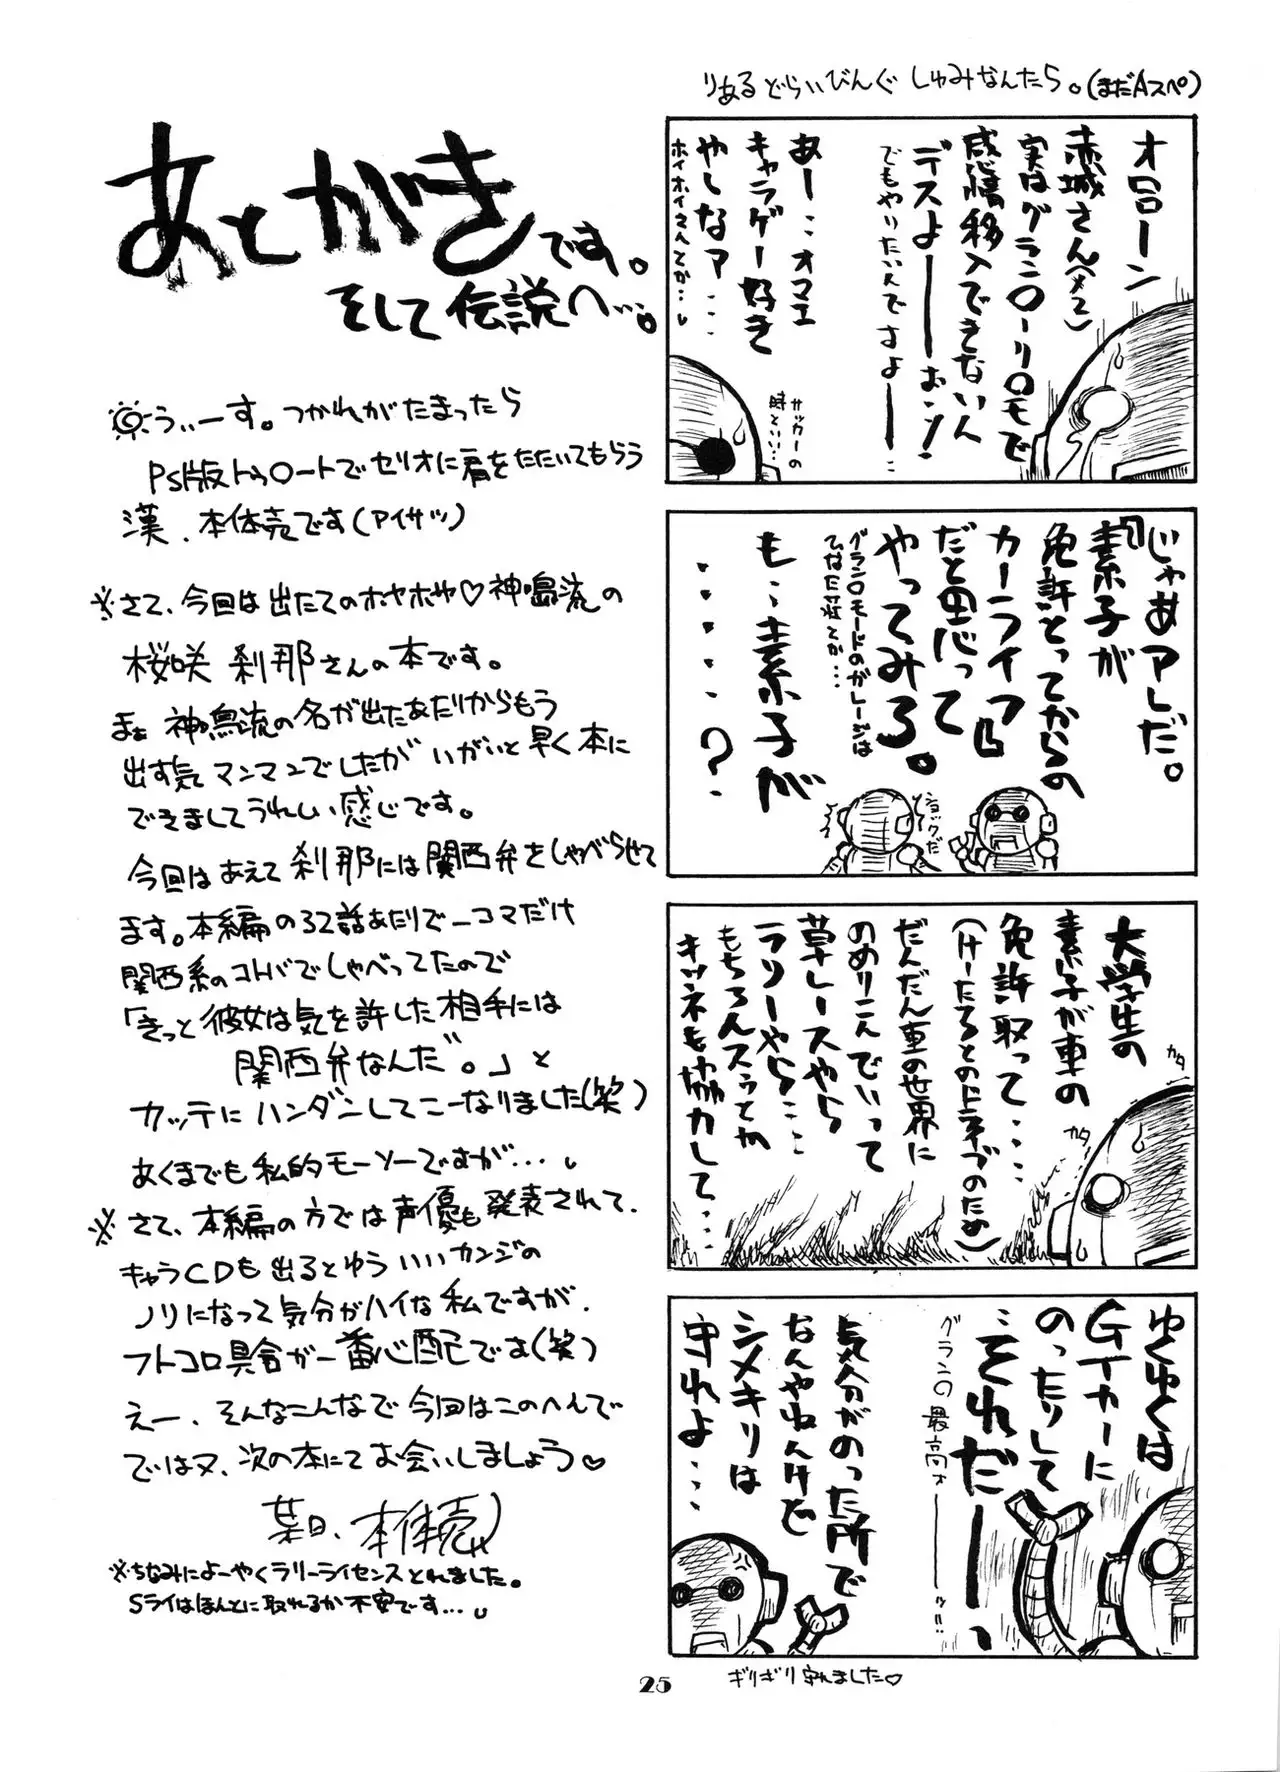 あとがきです。
そして伝説へ…。
うぃーす。つかれがたまったら
PS版トゥハートでセリオに肩をたたいてもらう
漢、本体売です(アイサツ)
※さて、今回は出たてのホヤホヤ♡神鳴流の
桜咲 刹那さんの本です。
まぁ 神鳴流の名が出たあたりからもう
出す気マンマンでしたが いがいと早く本に
できましてうれしい感じです。
今回はあえて刹那には関西弁をしゃべらせて
ます。本編の32話あたりで一コマだけ
関西系のコトバでしゃべってたので
「きっと彼女は気を許した相手には
関西弁なんだ。」と
カッテにハンダンしてこーなりました(笑)
あくまでも私的モーソーですが…。
※さて、本編の方では声優も発表されて、
キャラCDも出るとゆういいカンジの
ノリになって気分がハイな私ですが、
フトコロ具合が一番心配です(笑)
えー、そんなこんなで今回はこのへんで
ではヌ、次の本にてお会いしましょう♡
某日、本体売
※ちなみによーやくラリーライセンスとれました。
Sライはほんとに取れるか不安です…。
りあるどらいびんぐ しゅみなんたら。(まだAスペ)
オローン
赤城さん(メコ)
実はグラン〇ーリ〇モで
感情移入できないん
デスよーーおン!
でもやりたいんですよーー
あー…オマエ
キャラゲー好き
やしなァ…
ホイホイさんとか…。
サッカーの
時といい…
『じゃあアレだ。
素子が
免許とってからの
カーライフ』
だと思って
やってみろ。
グラン〇モードのガレージは
ひなた荘とか…
も…素子が
・・・・?
ショックだ
大学生の
素子が車の
免許取って・・・・
(けーたろとのドライブのため)
だんだん車の世界に
のめりこんでいって
草レースやら
ラリーやら…
もちろんスゥとか
キツネも協力して…
カタ
カタ
ゆくゆくは
GTカーに
のったりして
…それだーーっ
グランの最高ォーーッ!!
気分がのった所で
なんやねんけど
シメキリは
守れよ…
ギリギリ守れました♡
25